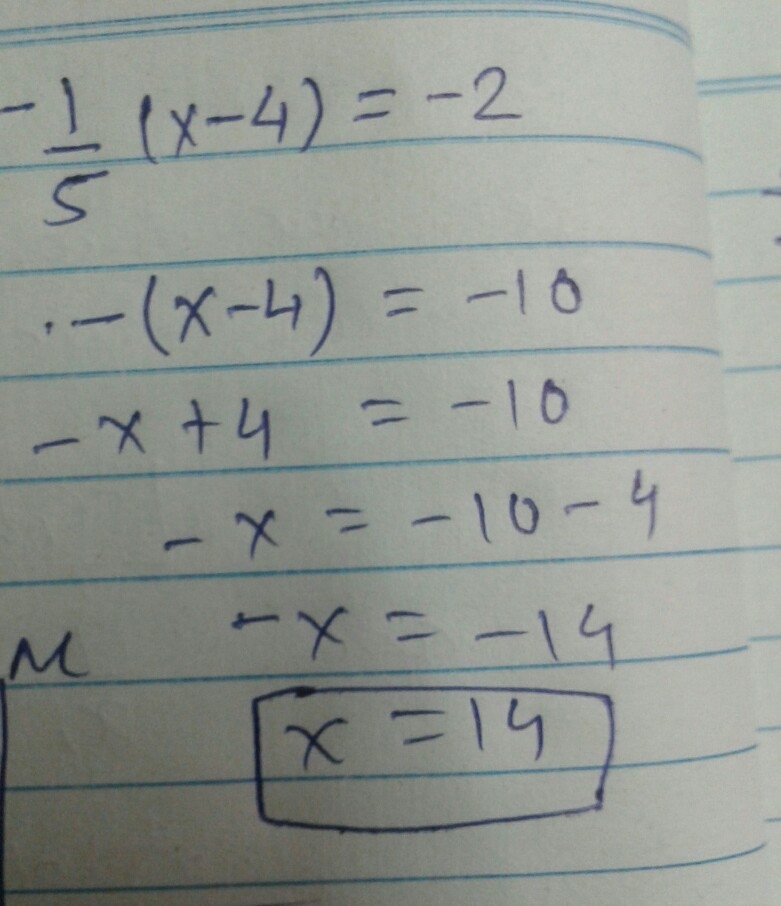 -1/5 (x-4) = -2
.-(x-4) = -10
-x+4 = -10
-x = -10-4
-x = -14
x = 14